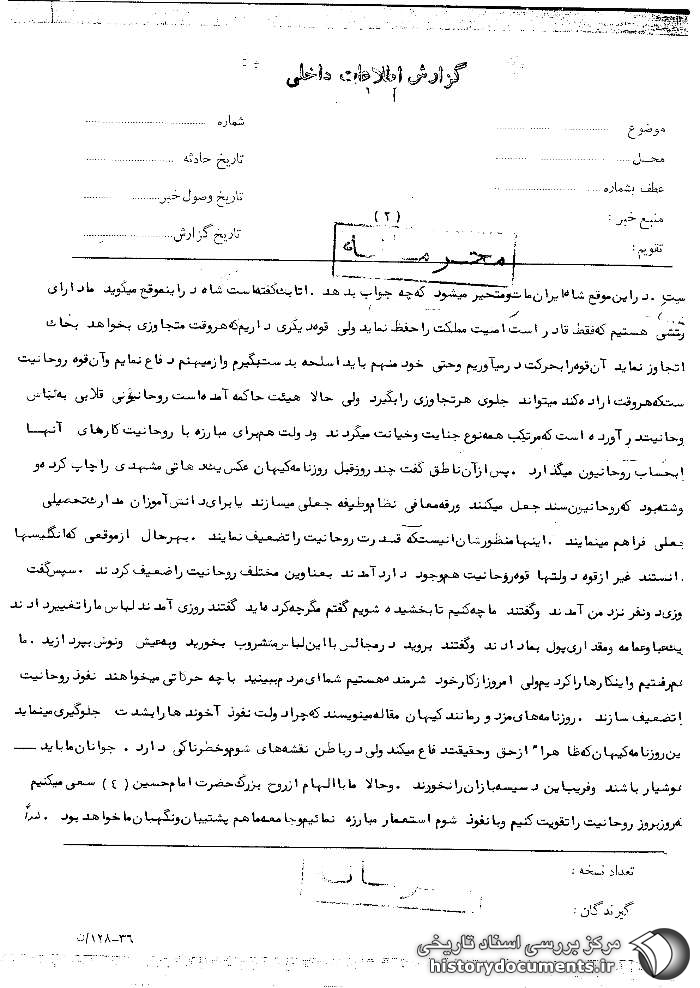 گزارش اطلاعات داخلی
موضوع
شماره
محل
تاریخ حادثه
عطف بشماره
تاریخ وصول خبر
منبع خبر :
(۲)
تاریخ گزارش
تقویم :
محرمانه
در این موقع شاه ایران مات و متحیر میشود که چه جواب بدهد . اتابک گفته است شاه در اینموقع میگوید ما دارای
هستیم که فقط قادر است امنیت مملکت را حفظ نماید ولی قوه دیگری داریم که هر وقت متجاوزی بخواهد بخاک
تجاوز نماید آن قوه را بحرکت در میآوریم وحتی خود منهم باید اسلحه بدست بگیرم واز میهنم دفاع نمایم وآن قوه روحانیت
که هر وقت اراده کند میتواند جلوی هر تجاوزی را بگیرد ولی حالا هیئت حاکمه آمده است روحانیونی قلابی به لباس
در آورده است که مرتکب همه نوع جنایت وخیانت میگردند ودولت هم برای مبارزه با روحانیت کارهای آنها
بحساب روحانیون میگذارد . پس از آن ناطق گفت چند روز قبل روزنامه کیهان عکس یک دهاتی مشهدی را چاپ کرده و
بود که روحانیون سند جعل میکنند ورقه معافی نظام وظیفه جعلی میسازند یا برای دانش آموزان مدارک تحصیلی
جعلی فراهم مینمایند . اینها منظورشان اینستکه قدرت روحانیت را تضعیف نمایند . بهرحال از موقعی که انگلیسها
دانستند غیر از قوه دولتها قوه روحانیت هم وجود دارد آمدند بعناوین مختلف روحانیت را ضعیف کردند . سپس گفت
دو نفر نزد من آمدند وگفتند ما چه کنیم تا بخشیده شویم گفتم مگر چه کرده اید گفتند روزی آمدند لباس ما را تغییر دادند
عبا وعمامه ومقداری پول بما دادند وگفتند بروید در مجالس با این لباس مشروب بخورید وبه عیش ونوش بپردازید . ما
هم رفتیم واینکارها را کردیم ولی امروز از کار خود شرمنده هستیم شما ای مردم ببینید با چه حرکاتی میخواهند نفوذ روحانیت
را تضعیف سازند . روزنامه های مزدور مانند کیهان مقاله مینویسند که چرا دولت نفوذ آخوند ها را بشدت جلوگیری مینماید
این روزنامه کیهان که ظاهراً از حق وحقیقت دفاع میکند ولی در باطن نقشه های شوم وخطرناکی دارد . جوانان ما باید
هوشیار باشند وفریب این دسیسه بازان را نخورند . وحالا ما با الهام از روح بزرگ حضرت امام حسین (ع) سعی میکنیم
روز بروز روحانیت را تقویت کنیم وبا نفوذ شوم استعمار مبارزه نمائیم وجامعه ما هم پشتیبان ونگهبان ما خواهد بود .
تعداد نسخه :
گیرندگان :
۱۲۸-۳۶/ن
مرکز بررسی اسناد تاریخی
historydocuments.ir